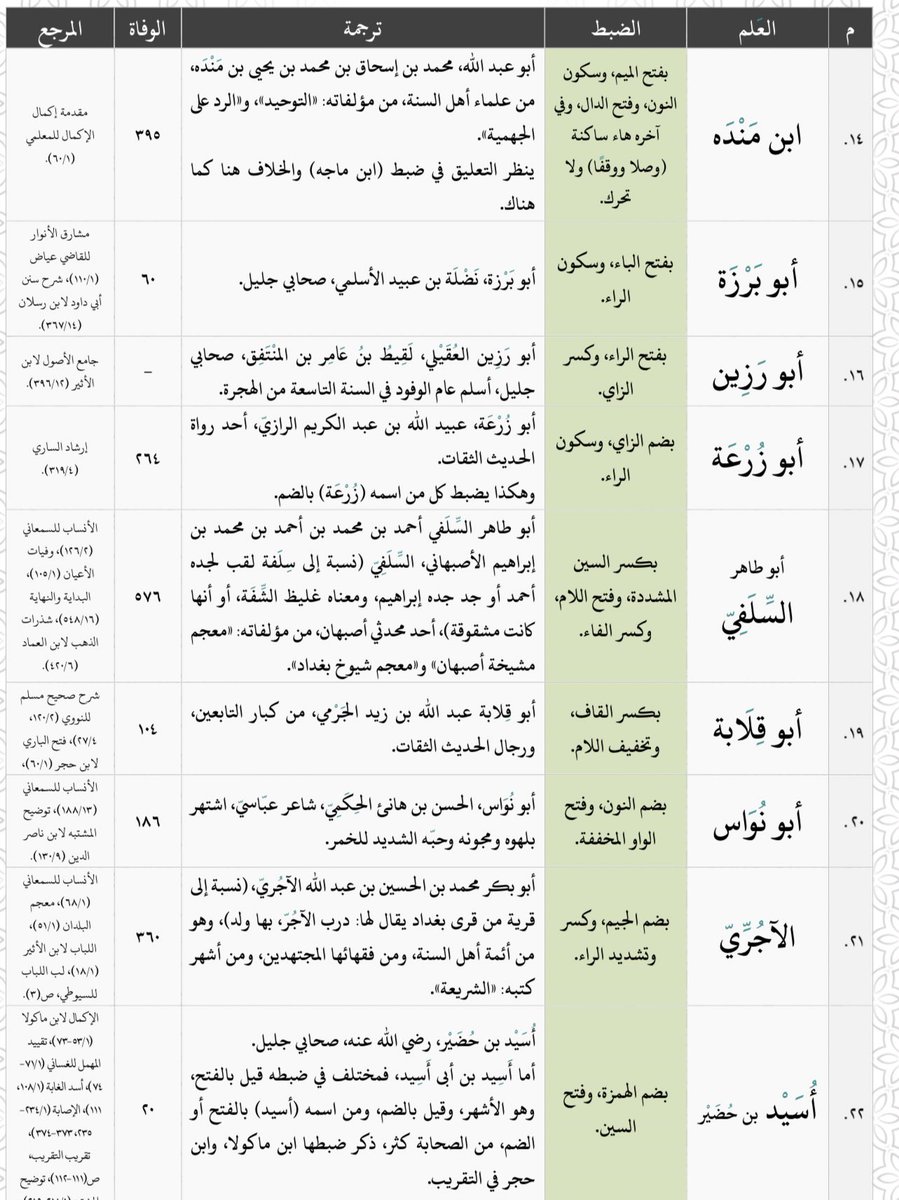 م العَلم الضبط ترجمة الوفاة المرجع
١٤. ابن مَنْدَه
بفتح الميم، وسكون
النون، وفتح الدال، وفي
آخره هاء ساكنة
(وصلا ووقفًا) ولا
تحرك.
أبو عبد الله، محمد بن إسحاق بن محمد بن يحيى بن مَنْدَه،
من علماء أهل السنة، من مؤلفاته: «التوحيد»، و«الرد على
الجهمية».
ينظر التعليق في ضبط (ابن ماجه) والخلاف هنا كما
هناك.
٣٩٥
مقدمة إكمال
الإكمال للمعلمي
(٦٠/١).
١٥. أبو بَرْزَة
بفتح الباء، وسكون
الراء.
أبو بَرْزة، نَضْلَة بن عبيد الأسلمي، صحابي جليل.
٦٠
مشارق الأنوار
للقاضي عياض
(١١٠/١)، شرح سنن
أبي داود لابن رسلان
(٣٦٧/١٤).
١٦. أبو رَزِين
بفتح الراء، وكسر
الزاي.
أبو رَزِين العُقَيْلي، لَقِيطُ بنُ عَامِر بن المُنْتَفِق، صحابي
جليل، أسلم عام الوفود في السنة التاسعة من الهجرة.
–
جامع الأصول لابن
الأثير (٣٩٦/١٢).
١٧. أبو زُرْعَة
بضم الزاي، وسكون
الراء.
أبو زُرْعَة، عبيد الله بن عبد الكريم الرازيّ، أحد رواة
الحديث الثقات.
وهكذا يضبط كل من اسمه (زُرْعَة) بالضم.
٢٦٤
إرشاد الساري
(٣١٩/٤).
١٨. أبو طاهر
السِّلَفِيّ
بكسر السين
المشددة، وفتح اللام،
وكسر الفاء.
أبو طاهر السِّلَفي أحمد بن محمد بن أحمد بن محمد بن
إبراهيم الأصبهاني، السِّلَفِيّ (نسبة إلى سِلَفة لقب لجده
أحمد أو جد جده إبراهيم، ومعناه غليظ الشَّفَة، أو أنها
كانت مشقوقة)، أحد محدثي أصبهان، من مؤلفاته: «معجم
مشيخة أصبهان» و«معجم شيوخ بغداد».
٥٧٦
الأنساب للسمعاني
(١٢٦/٢)، وفيات
الأعيان (١٠٥/١)،
البداية والنهاية
(٥٤٨/١٦)، شذرات
الذهب لابن العماد
(٤٢٠/٦).
١٩. أبو قِلَابة
بكسر القاف،
وتخفيف اللام.
أبو قِلابة عبد الله بن زيد الجَرْمي، من كبار التابعين،
ورجال الحديث الثقات.
١٠٤
شرح صحيح مسلم
للنووي (١٢٠/٢،
٢٧/٤)، فتح الباري
لابن حجر (٦٠/١)،
٢٠. أبو نُوَاس
بضم النون، وفتح
الواو المخففة.
أبو نُوَاس، الحسن بن هانئ الحِكَمِيّ، شاعر عبّاسيّ، اشتهر
بلهوه ومجونه وحبّه الشديد للخمر.
١٨٦
الأنساب للسمعاني
(١٨٨/١٣)، توضيح
المشتبه لابن ناصر
الدين (١٣٠/٩).
٢١. الآجُرِّيّ
بضم الجيم، وكسر
وتشديد الراء.
أبو بكر محمد بن الحسين بن عبد الله الآجُريّ، (نسبة إلى
قرية من قرى بغداد يقال لها: درب الآجُرّ، بها ولد)، وهو
من أئمة أهل السنة، ومن فقهائها المجتهدين، ومن أشهر
كتبه: «الشريعة».
٣٦٠
الأنساب للسمعاني
(٦٨/١)، معجم
البلدان (٥١/١)،
اللباب لابن الأثير
(١٨/١)، لب اللباب
للسيوطي، ص(٣).
٢٢. أُسَيْد بن حُضَيْر
بضم الهمزة، وفتح
السين.
أُسَيْد بن حُضَيْر، رضي الله عنه، صحابي جليل.
أما أَسِيد بن أبي أَسِيد، فمختلف في ضبطه قيل بالفتح،
وهو الأشهر، وقيل بالضم، ومن اسمه (أسيد) بالفتح أو
الضم، من الصحابة كثر، ذكر ضبطها ابن ماكولا، وابن
حجر في التقريب.
٢٠
الإكمال لابن ماكولا
(٥٣/١-٧٣)، تقييد
المهمل للغساني (٧١/١-
٧٤)، أسد الغابة (١٠٨/١،
١١١)، الإصابة (٢٣٤/١-
٢٣٥، ٣٧٣-٣٧٤)،
تقريب التقريب،
ص(١١١-١١٢)، توضيح